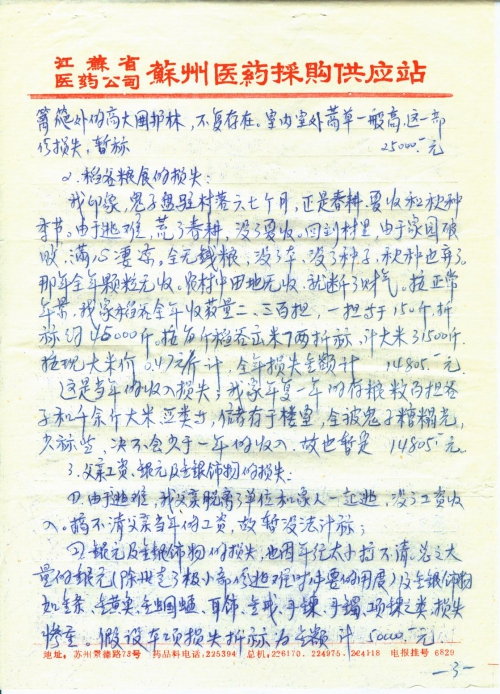 江苏省
医药公司 苏州医药採購供应站
篱笆外的高大围护林，不复存在。室内室外蒿草一般高，这一部
份损失，暂标 25000.－元
2. 稻谷粮食的损失：
我印象，鬼子盘驻村落六七个月，正是春耕、夏收和秋种
季节。由于逃难，荒了春耕，没了夏收。回到村里，由于家园破
败，满心凄凉，全无钱粮，没了车，没了种子，秋种也弃了。
那年全年颗粒无收。农村中田地无收，就断了财气。按正常
年景，我家稻谷全年收获量二、三百担，一担当于150斤，折
标约45000斤，按百斤稻谷出米70折标，计大米31500斤，
按现大米价0.47元斤计，全年损失金额计 14805.－元。
这是当年的收入损失；我家年复一年的存粮数百担谷
子和千余斤大米，豆类等，储存于楼室，全被鬼子糟蹋光，
少标些，决不会少于一年的收入，故也暂是 14805.－元
3. 父亲工资、银元及金银饰物的损失：
由于逃难，我父亲脱离了单位和家人一起逃，没了工资收
入。搞不清父亲当年的工资，故暂没法计标；
银元及金银饰物的损失，也因年纪太小搞不清。总之大
量的银元(除带走了极小部份担难时必要的用度)及金银饰物
如金条、金黄米、金蝴蝶、耳饰、金戒、手镯、项链之类，损失
惨重。假设此项损失折标为金额计 5000.－元
地址：苏州景德路73号 药品科电话：225394 总机：226170、224975、224118 电报挂号 6829
—3—